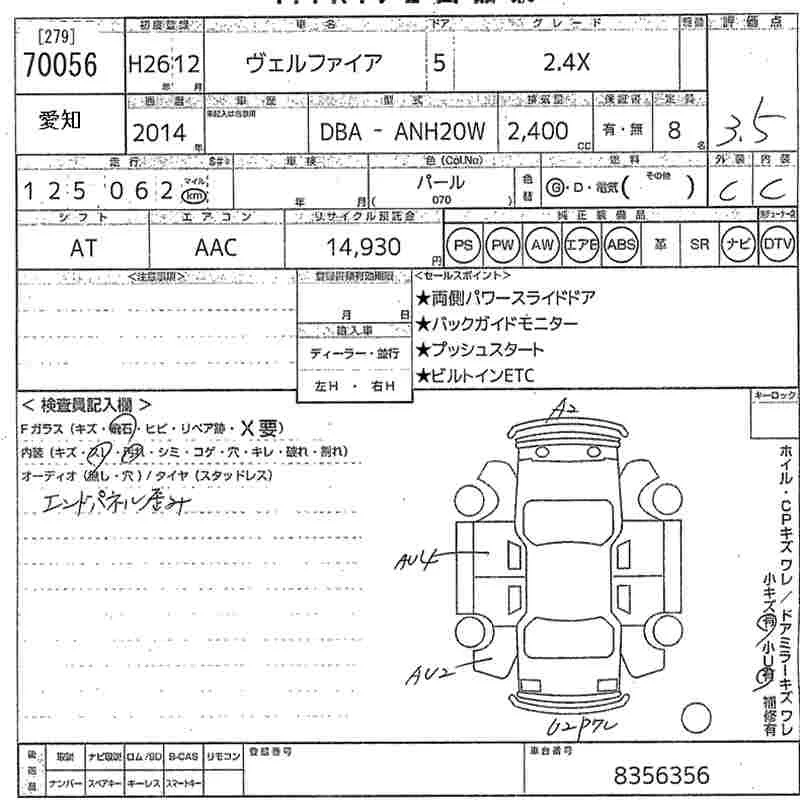 [279]
70056
初度登録 車名 ドア グレード
H26 12 ヴェルファイア 5 2.4X
年 月
評価点
3.5
愛知
車歴 型式 排気量 保証書 定員
2014 年
未記入は自家用
DBA - ANH20W 2,400 CC 有・無 8 名
走行 車検 色(Col.No) 燃料 外装 内装
125062 マイル km
年 月
パール
( 070 )
色替
G・D・電気( その他 )
C C
シフト エアコン リサイクル預託金 純正装備品
AT AAC 14,930 円
PS PW AW エアB ABS 革 SR ナビ DTV
<注意事項>
登録書類有効期限
月 日
輸入車
ディーラー・並行
左H・右H
<セールスポイント>
★両側パワースライドドア
★バックガイドモニター
★プッシュスタート
★ビルトインETC
キーロック
<検査員記入欄>
Fガラス(キズ・飛石・ヒビ・リペア跡・X要)
内装(キズ・スレ・汚れ・シミ・コゲ・穴・キレ・破れ・割れ)
オーディオ(無し・穴)/タイヤ(スタッドレス)
エンドパネル歪み
A2
AU4
AU2
U2P7レ
ホイル・CPキズワレ/ドアミラーキズワレ
小キズ有 小U有 補修有
後日品
取説 ナビ取説 ロム/SD B-CAS リモコン
ナンバー スペアキー キーレス スマートキー
登録番号
車台番号
8356356